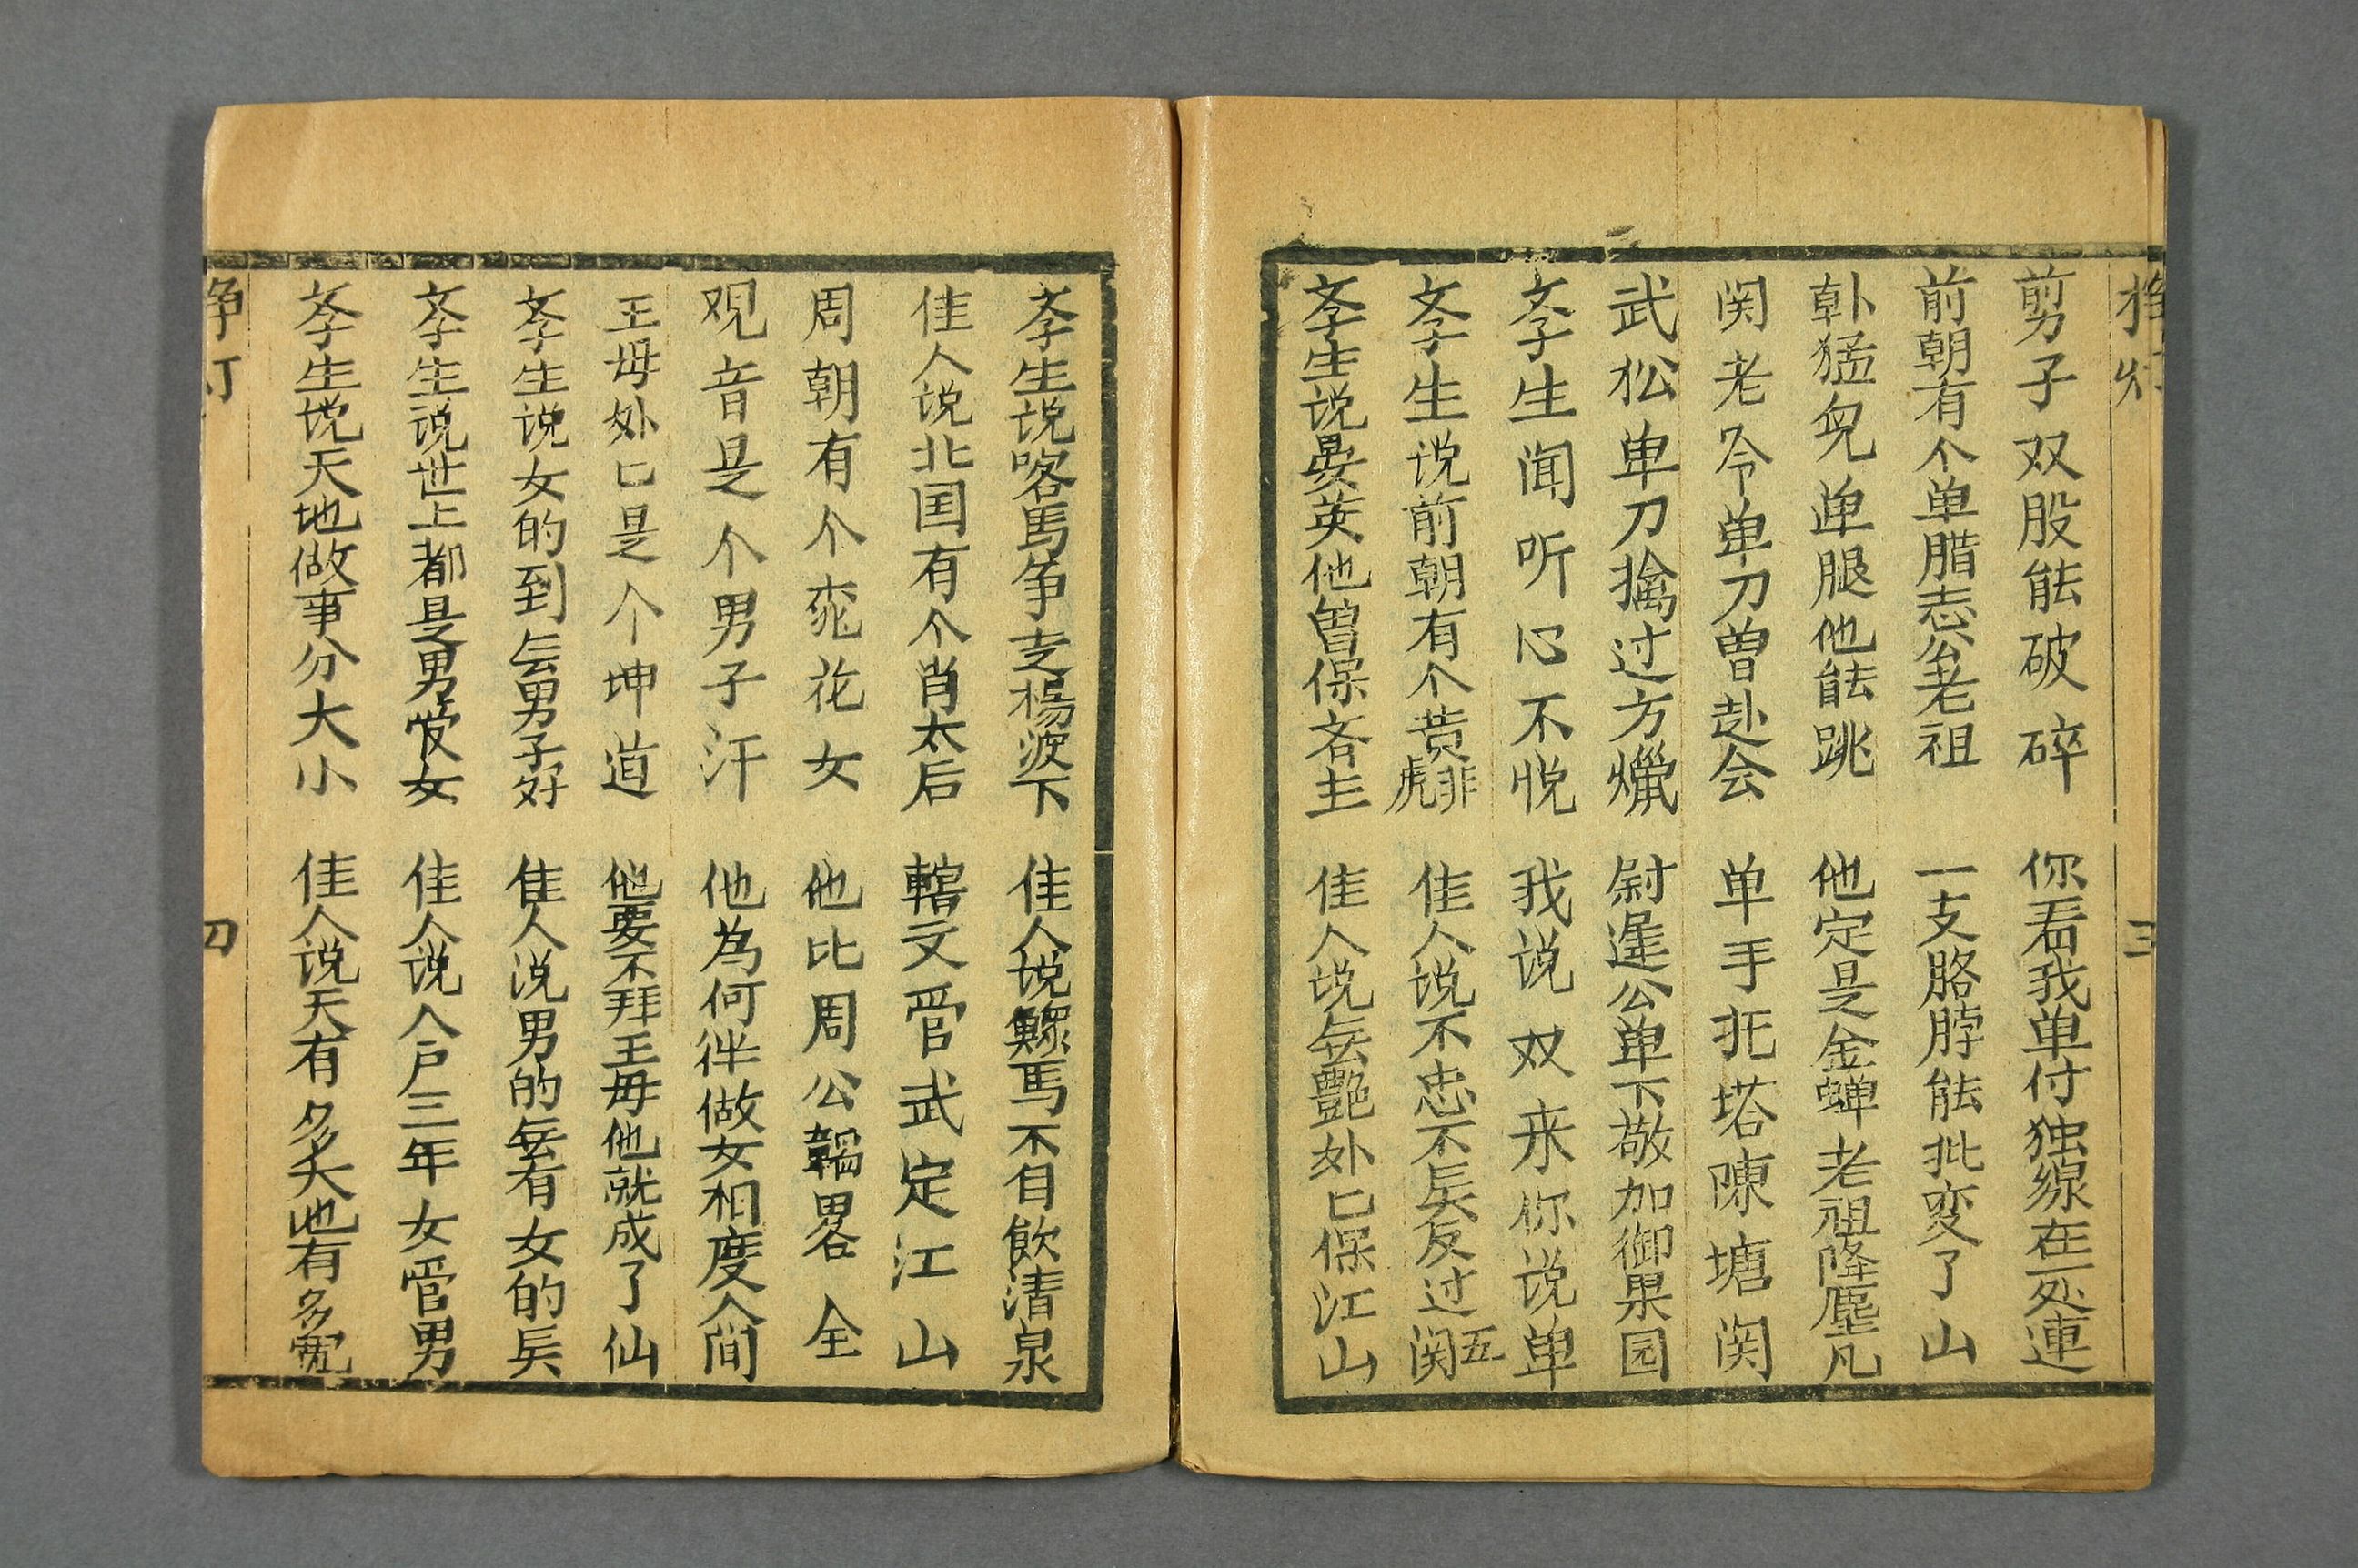 剪子双股能破碎 你看我单付独線在一处連
前朝有个单腊志公老祖 一支胳脖能批变了山
卦猛兒单腿他能跳 他定是金蝉老祖降塵凡
関老令单刀曽赴会 单手托塔陳塘関
武松单刀擒过方爉 尉遲公单下敬加御果园
孝生闻听心不悦 我说双来你说单
孝生说前朝有个黄非虎 佳人说不忠不矣反过五関
孝生说晏英他曽保斉主 佳人说無艷外㠯保江山
孝生说喀馬争走楊波下 佳人说騾馬不自飲清泉
佳人说北国有个肖太后 轄文管武定江山
周朝有个窕花女 他比周公韜畧全
观音是个男子汗 他為何徉做女相度人間
王毋外㠯是个坤道 他要不拜王毋他就成了仙
孝生说女的到無男子好 佳人说男的無有女的矣
孝生说世上都是男管女 佳人说入户三年女管男
孝生说天地做事分大小 佳人说天有多大地有多寛
争灯
三